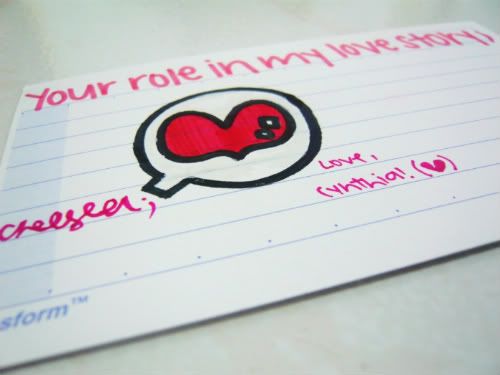 Your role in my love story,
Love,
Cynthia! (♥)
Chelsea;
sform™